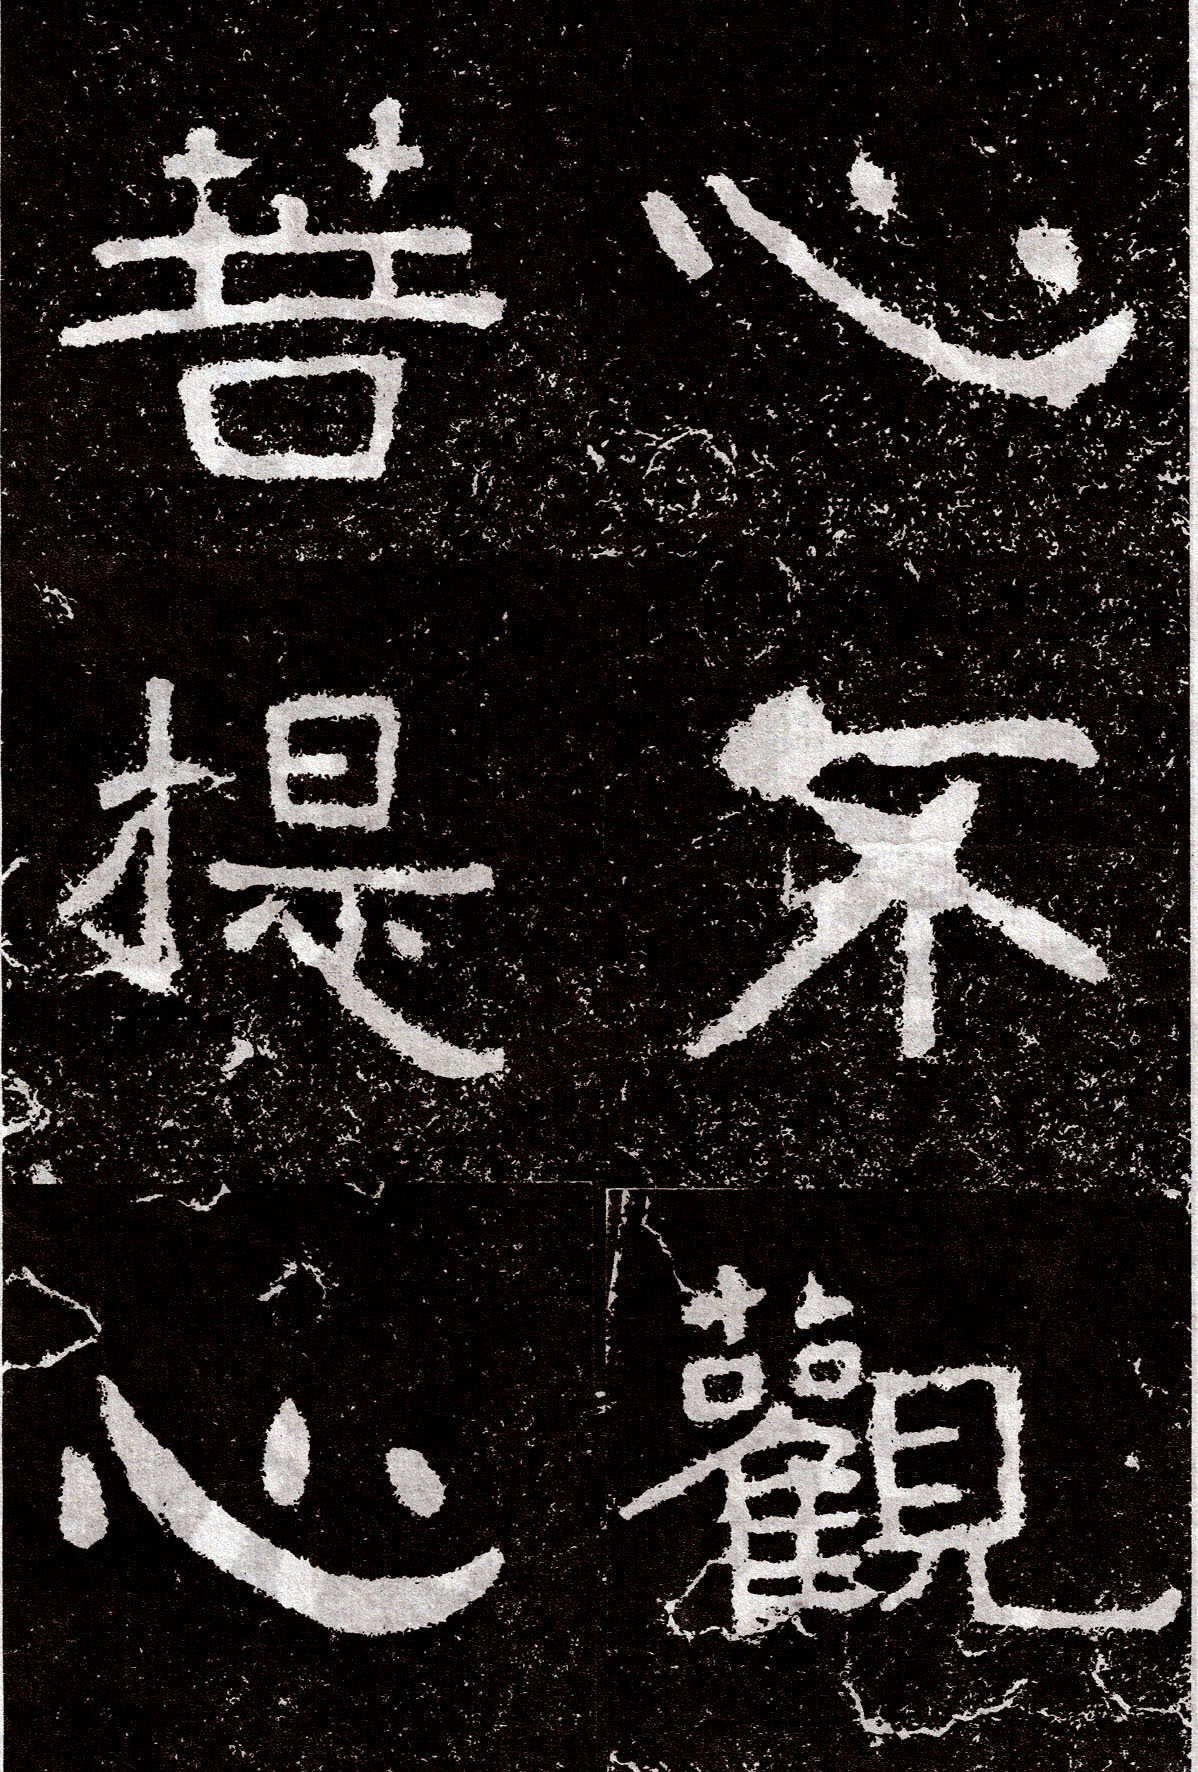 心不觀
菩提心